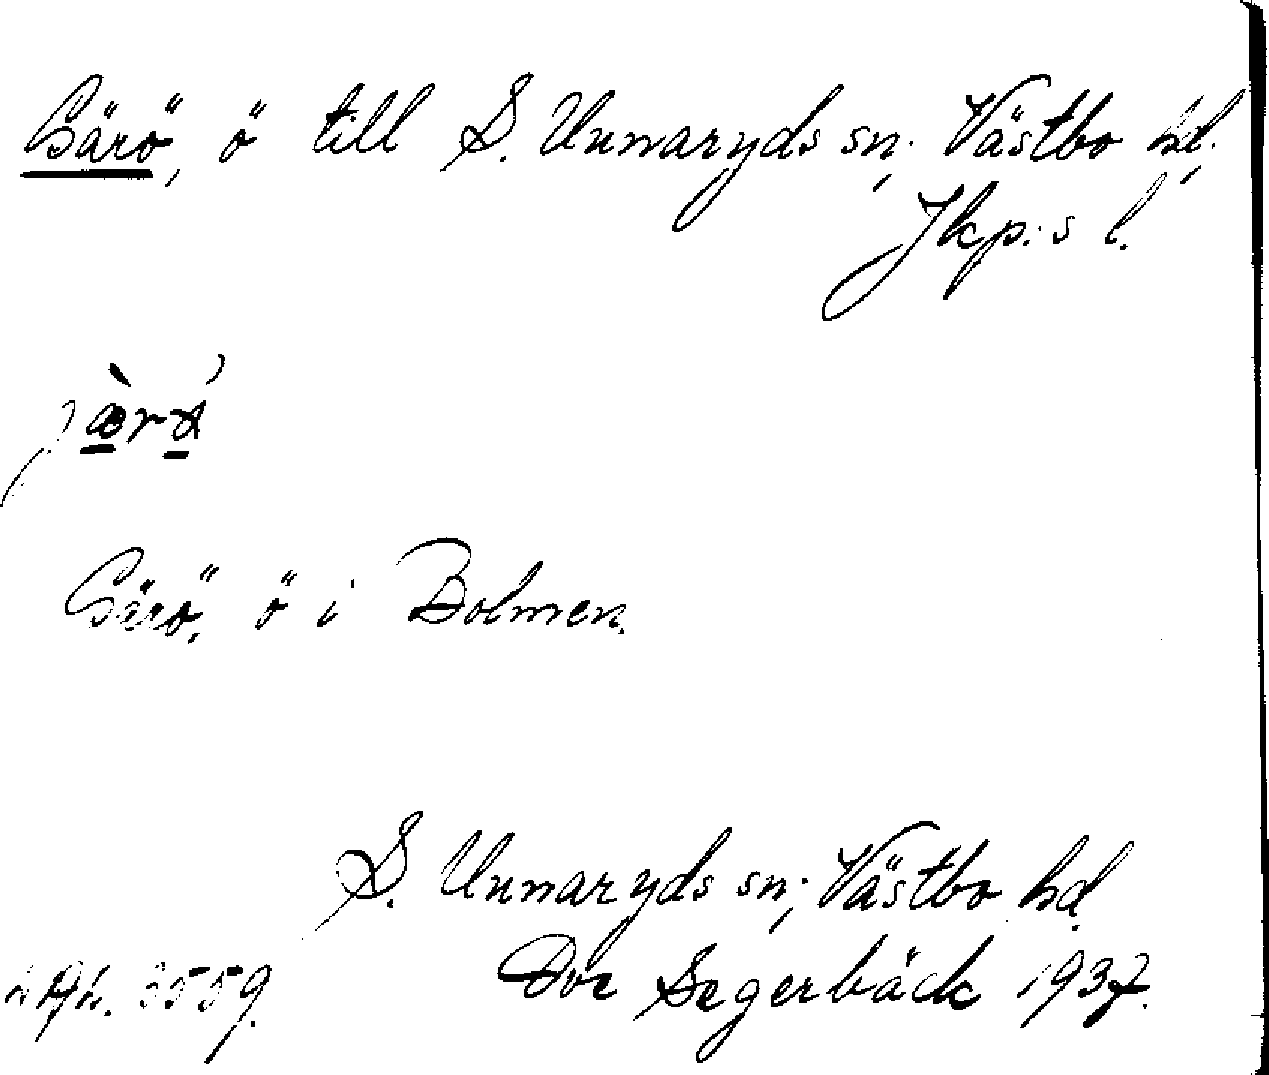 Gärö, ö till S. Unnaryds sn, Västbo hd,
Jkp:s l.
Gärö, ö i Bolmen.
S. Unnaryds sn, Västbo hd.
3559. Segerbäck 1937.